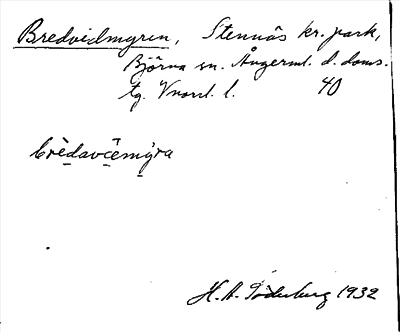 Bredvidmyren, Stennäs kr. park,
Björna sn. Ångerml. d. doms.
tg. Vnorrl. l. 40
brèdavcèmýra
H. A. Söderberg 1932